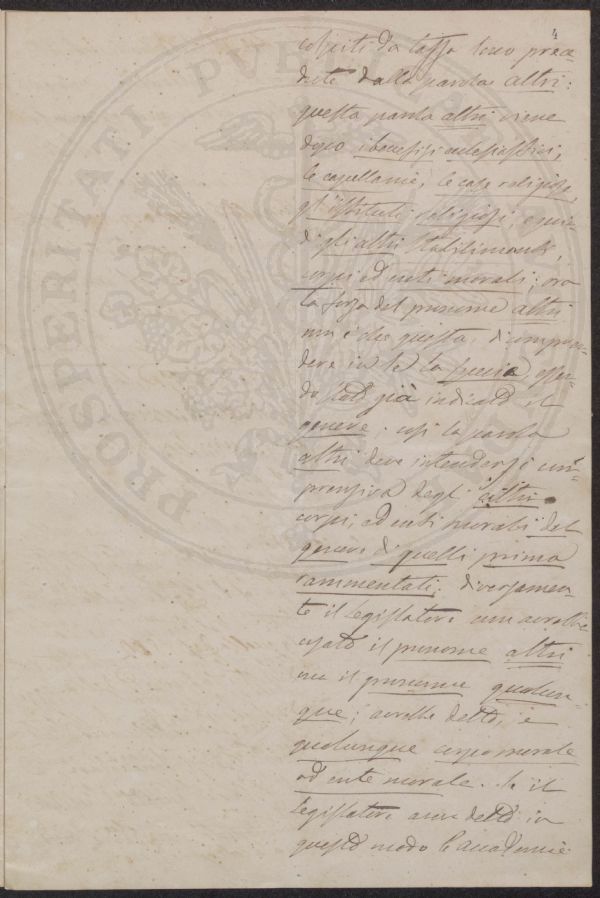 4
colpiti da tassa sono prece-
dute dalla parola altri:
questa parola altri viene
dopo i benefizi ecclesiastici,
le capellanie, le case religiose,
gl'istituti religiosi, e quin-
di gli altri stabilimenti,
corpi ed enti morali; ora
la forza del pronome altri
non è che questa, di compren-
dere in se la specie, essen-
do stato già indicato il
genere. così la parola
altri deve intendersi com-
prensiva degl'altri
corpi, ed enti morali del
genere di quelli prima
rammentati; diversamen-
te il legislatore non avrebbe
usato il pronome altri
ma il pronome qualun-
que; avrebbe detto, e
qualunque corpo morale
od ente morale. Se il
legislatore avesse detto in
questo modo l'accademie
PROSPERITATI PUBL